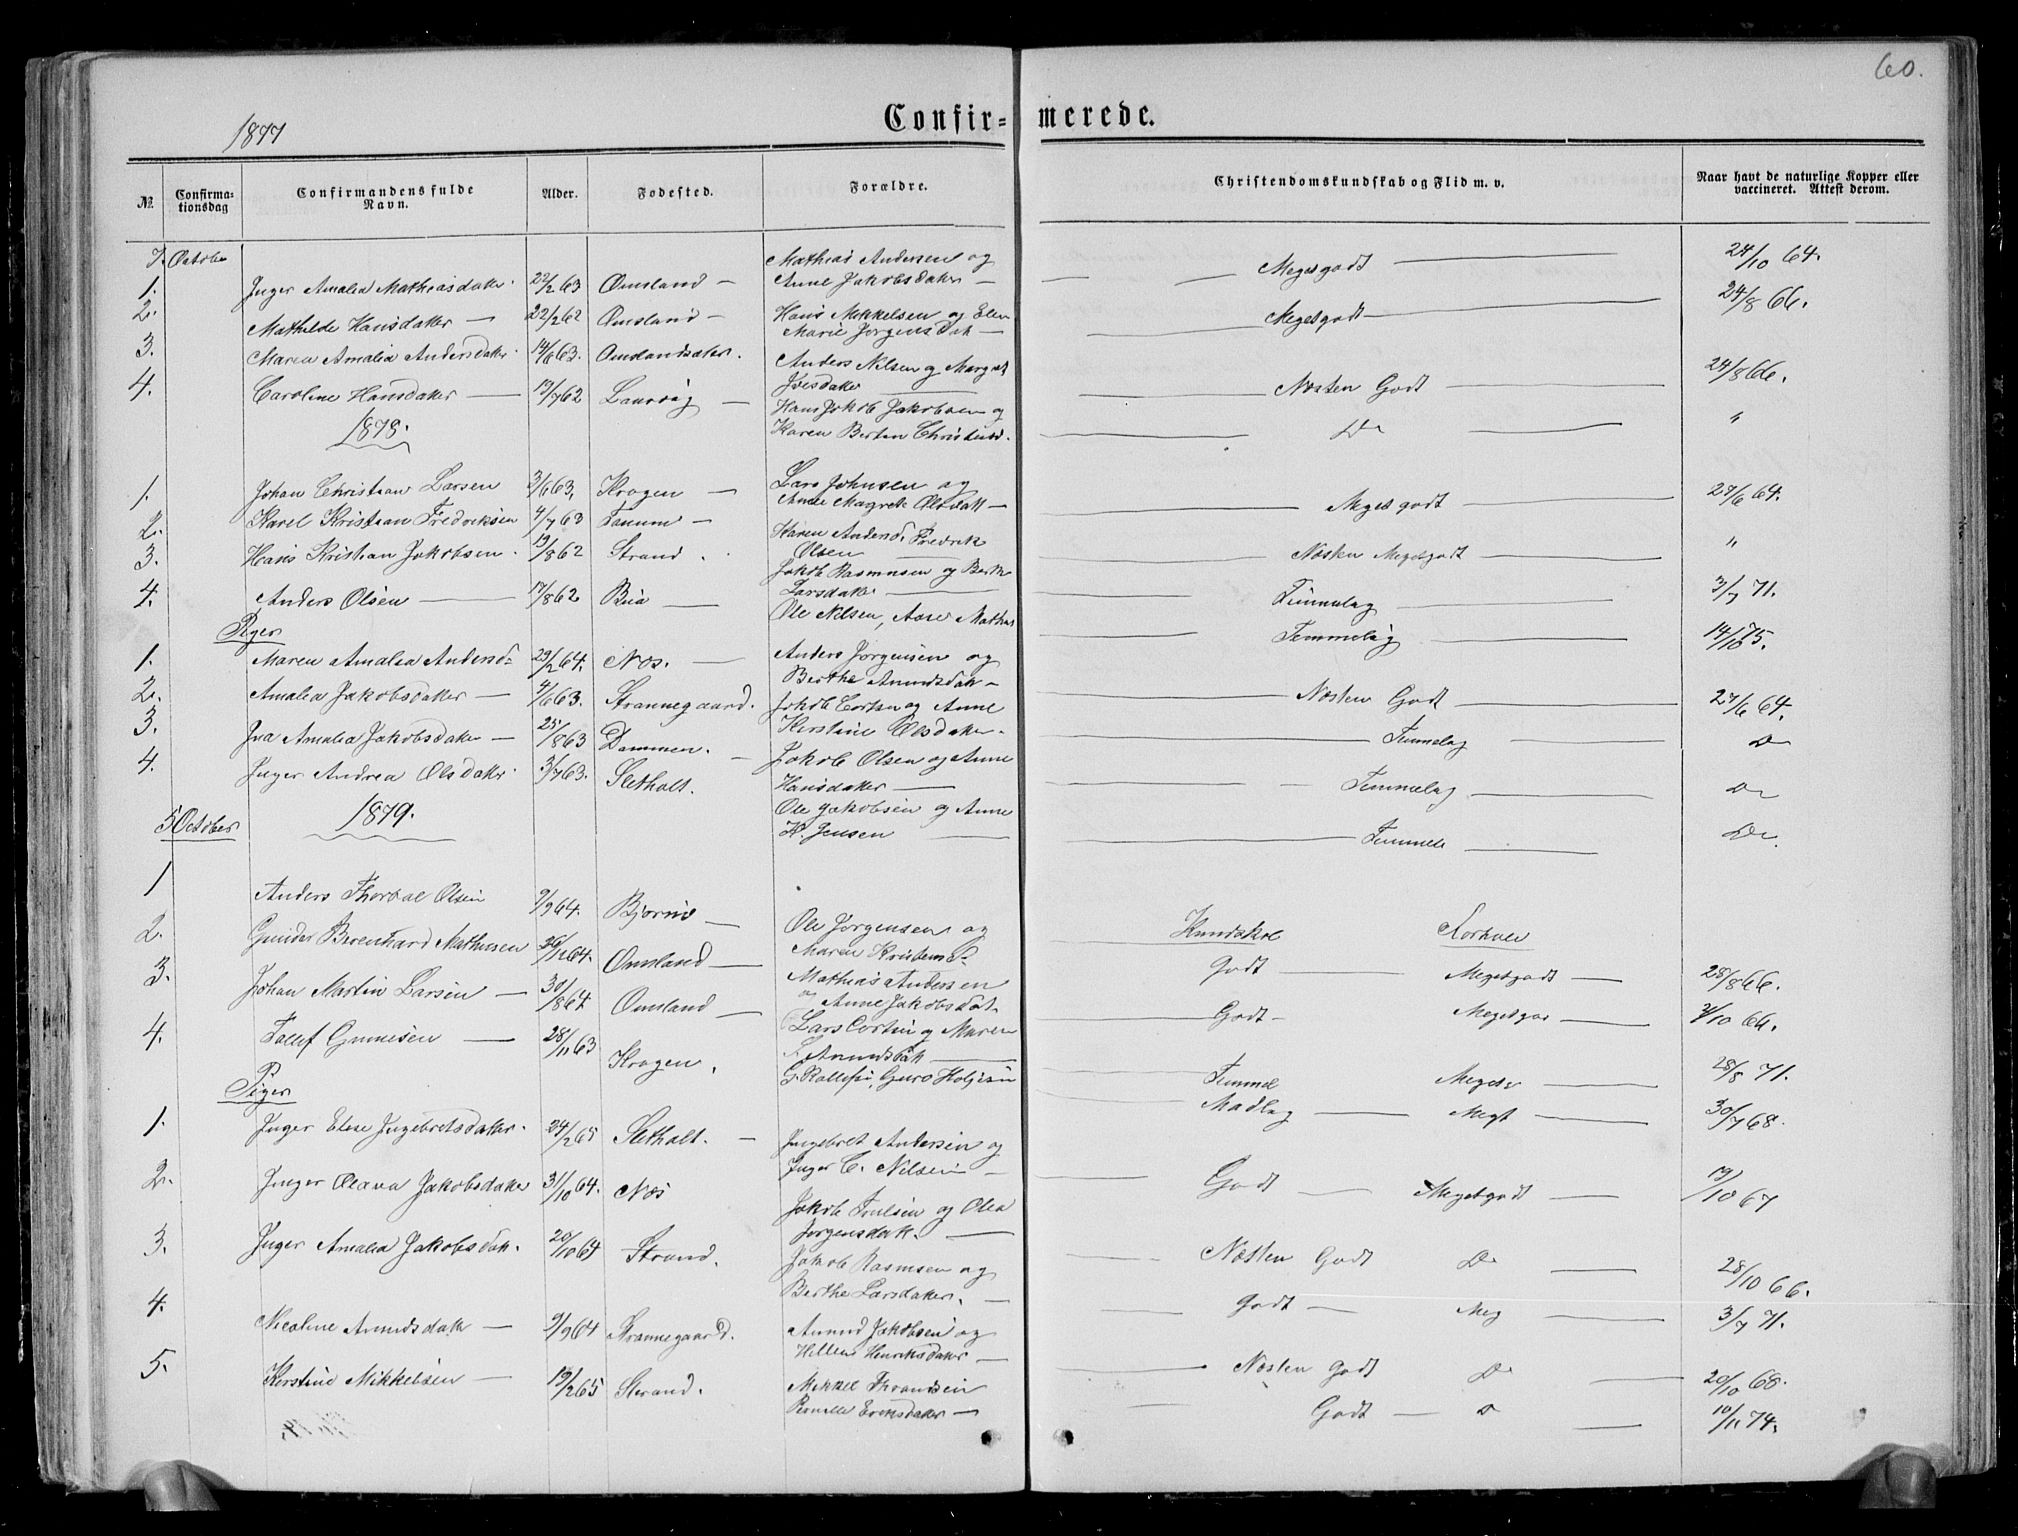 60.
1877
Confir= merede.
№ Confirma-tionsdag Confirmandens fulde Navn. Alder. Fødested. Forældre. Christendomskundskab og Flid m. v. Naar havt de naturlige Kopper eller vaccineret. Attest derom.
7. October Mathias Andersen og
1. Inger Amalia Mathiasdatter 22/2 63 Omsland Anne Jakobsdatter Megetgodt 24/10 64.
2. Mathilde Hansdatter 22/2 62 Omsland Hans Mikkelsen og Elen Marie Jorgensdatt Megetgodt 24/8 66.
3. Maren Amalia Andersdatter 14/6 63. Omslandsæter. Anders Nilsen og Margret Iversdatter Næsten Godt 24/8 66.
4. Caroline Hansdatter 19/7 62 Laurvig Hans Jakob Jakobsen og Karen Bertea Christensd. Do "
1878.
1. Johan Christian Larsen 3/6 63, Krogen Lars Johnsen og Anne Magrete Olsdatt Megetgodt 27/6 64.
2. Karel Kristian Fredriksen 4/7 63 Tanum Karen Andersd. Fredrik Olsen Næsten Megetgodt "
3. Hans Kristian Jakobsen 19/8 62 Strand. Jakob Rasmusen og Berthe Larsdatter Temmelig 3/7 71.
4. Anders Olsen 17/8 62 Bua Ole Nilsen, Aase Mathias Temmelig 14/10 75.
Piger
1. Maren Amalia Andersd= 29/2 64. Næs. Anders Jorgensen og Berthe Amundsdatt Næsten Godt 27/6 64.
2. Amalia Jakobsdatter 4/6 63. Strannegaard. Jakob Corten og Anne Kirstine Olsdatter. Temmelig Do
3. Ina Amalia Jakobsdatter 25/8 63 Dammen. Jakob Olsen og Anne Hansdatter Temmelig Do
4. Inger Andrea Olsdatter 3/7 63. Sletholt. Ole Jakobsen og Anne K. Jensen Temmele Do.
5 October 1879.
Kundskab Forhold
1 Anders Thorval Olsen 9/9 64. Bjørnø Ole Jørgensen og Maren Kristensd. Godt Megetgodt 28/8 66.
2. Gunder Berenhard Mathiesen 26/12 64. Omsland Mathias Andersen og Anne Jakobsdat. Godt Megetgod 2/10 66.
3. Johan Martin Larsen 30/8 64 Omsland Lars Corten og Maren Amundsdatt Temmel Megetg 28/8 71.
4. Tollef Gunnesen 28/11 63 Krogen, G. Rollefsen, Guro Holjesen Madlag Megt 30/7 68.
Piger
1. Inger Elene Ingebretsdatter. 24/2 65 Sletholt. Ingebret Andersen og Inger C. Nilsen Godt Megetgodt 19/10 67
2. Inger Olava Jakobsdatter 31/10 64. Næs Jakob Troulsen og Olea Jørgensdatt. Næsten Godt Do 28/10 66.
3. Inger Amalia Jakobsdatt. 20/10 64 Strand. Jakob Rasmsen og Berthe Larsdatter. Godt Meg 3/7 71.
4. Nicoline Amundsdatt 9/9 64 Strannegaard. Amund Jakobsen og Hellene Henriksdatter Næsten Godt Do 20/10 68.
5. Kirstine Mikkelsen 19/2 65 Strand. Mikkel Thrandsen Pernille Eriksdatter Godt Do 10/11 74.